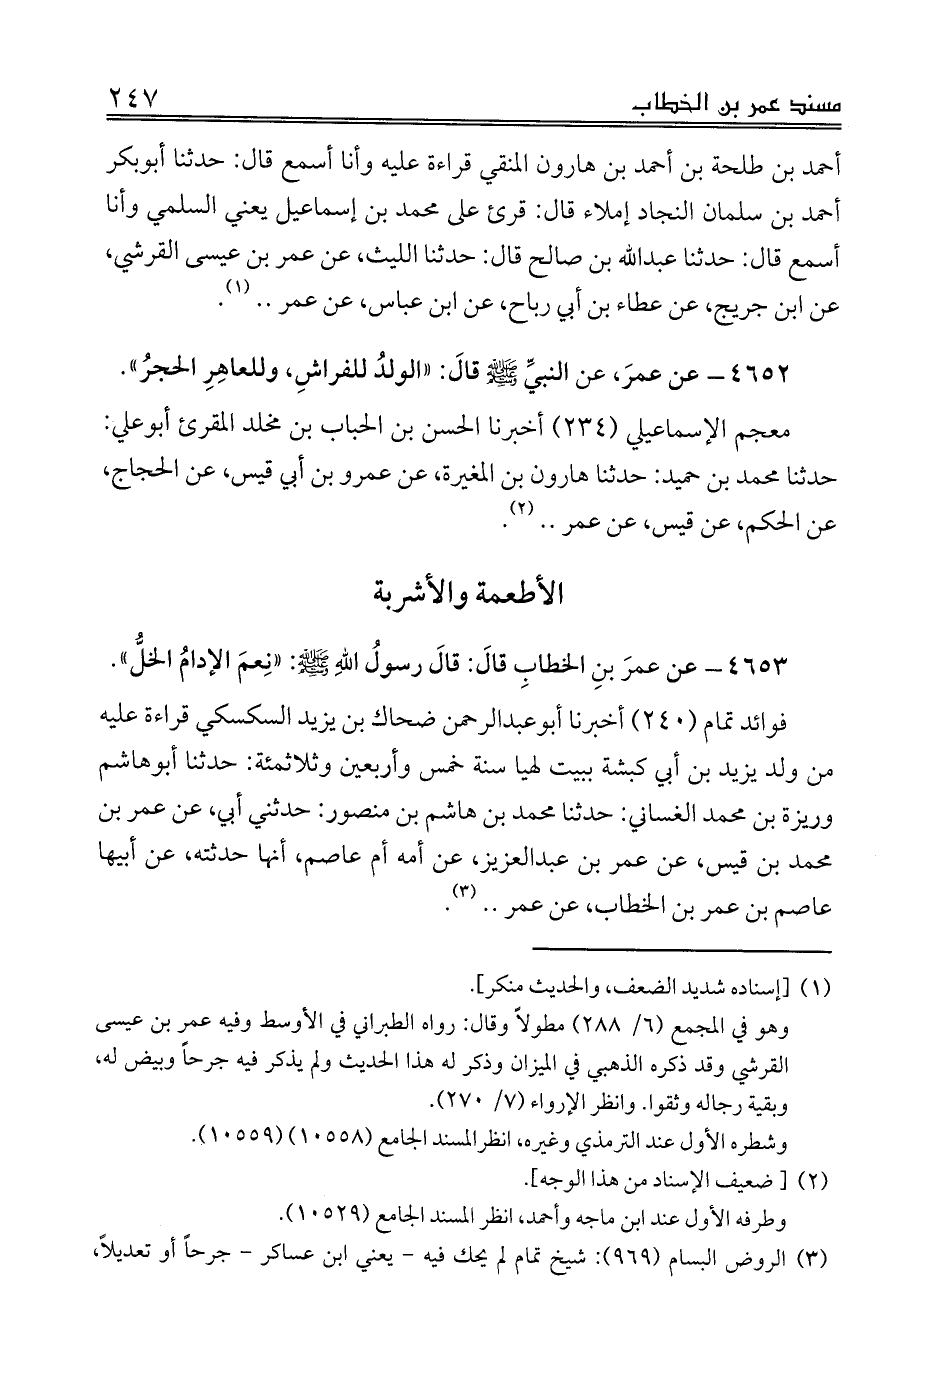 مسند عمر بن الخطاب ٢٤٧
أحمد بن طلحة بن أحمد بن هارون المنقي قراءة عليه وأنا أسمع قال: حدثنا أبوبكر
أحمد بن سلمان النجاد إملاء قال: قرئ على محمد بن إسماعيل يعني السلمي وأنا
أسمع قال: حدثنا عبدالله بن صالح قال: حدثنا الليث، عن عمر بن عيسى القرشي،
عن ابن جريج، عن عطاء بن أبي رباح، عن ابن عباس، عن عمر .. (١).
٤٦٥٢ – عن عمرَ، عن النبيِّ ﷺ قالَ: «الولدُ للفراشِ، وللعاهرِ الحجرُ».
معجم الإسماعيلي (٢٣٤) أخبرنا الحسن بن الحباب بن مخلد المقرئ أبوعلي:
حدثنا محمد بن حميد: حدثنا هارون بن المغيرة، عن عمرو بن أبي قيس، عن الحجاج،
عن الحكم، عن قيس، عن عمر .. (٢).
الأطعمة والأشربة
٤٦٥٣ – عن عمرَ بنِ الخطابِ قالَ: قالَ رسولُ اللهِ ﷺ: «نِعمَ الإدامُ الخلُّ».
فوائد تمام (٢٤٠) أخبرنا أبوعبدالرحمن ضحاك بن يزيد السكسكي قراءة عليه
من ولد يزيد بن أبي كبشة ببيت لهيا سنة خمس وأربعين وثلاثمئة: حدثنا أبوهاشم
وريزة بن محمد الغساني: حدثنا محمد بن هاشم بن منصور: حدثني أبي، عن عمر بن
محمد بن قيس، عن عمر بن عبدالعزيز، عن أمه أم عاصم، أنها حدثته، عن أبيها
عاصم بن عمر بن الخطاب، عن عمر .. (٣).
(١) [إسناده شديد الضعف، والحديث منكر].
وهو في المجمع (٦/ ٢٨٨) مطولاً وقال: رواه الطبراني في الأوسط وفيه عمر بن عيسى
القرشي وقد ذكره الذهبي في الميزان وذكر له هذا الحديث ولم يذكر فيه جرحاً وبيض له،
وبقية رجاله وثقوا. وانظر الإرواء (٧/ ٢٧٠).
وشطره الأول عند الترمذي وغيره، انظر المسند الجامع (١٠٥٥٨) (١٠٥٥٩).
(٢) [ ضعيف الإسناد من هذا الوجه].
وطرفه الأول عند ابن ماجه وأحمد، انظر المسند الجامع (١٠٥٢٩).
(٣) الروض البسام (٩٦٩): شيخ تمام لم يحك فيه - يعني ابن عساكر - جرحاً أو تعديلاً،